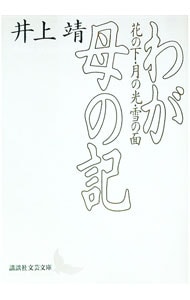 わが
母の記
花の下・月の光・雪の面
井上 靖
講談社文芸文庫